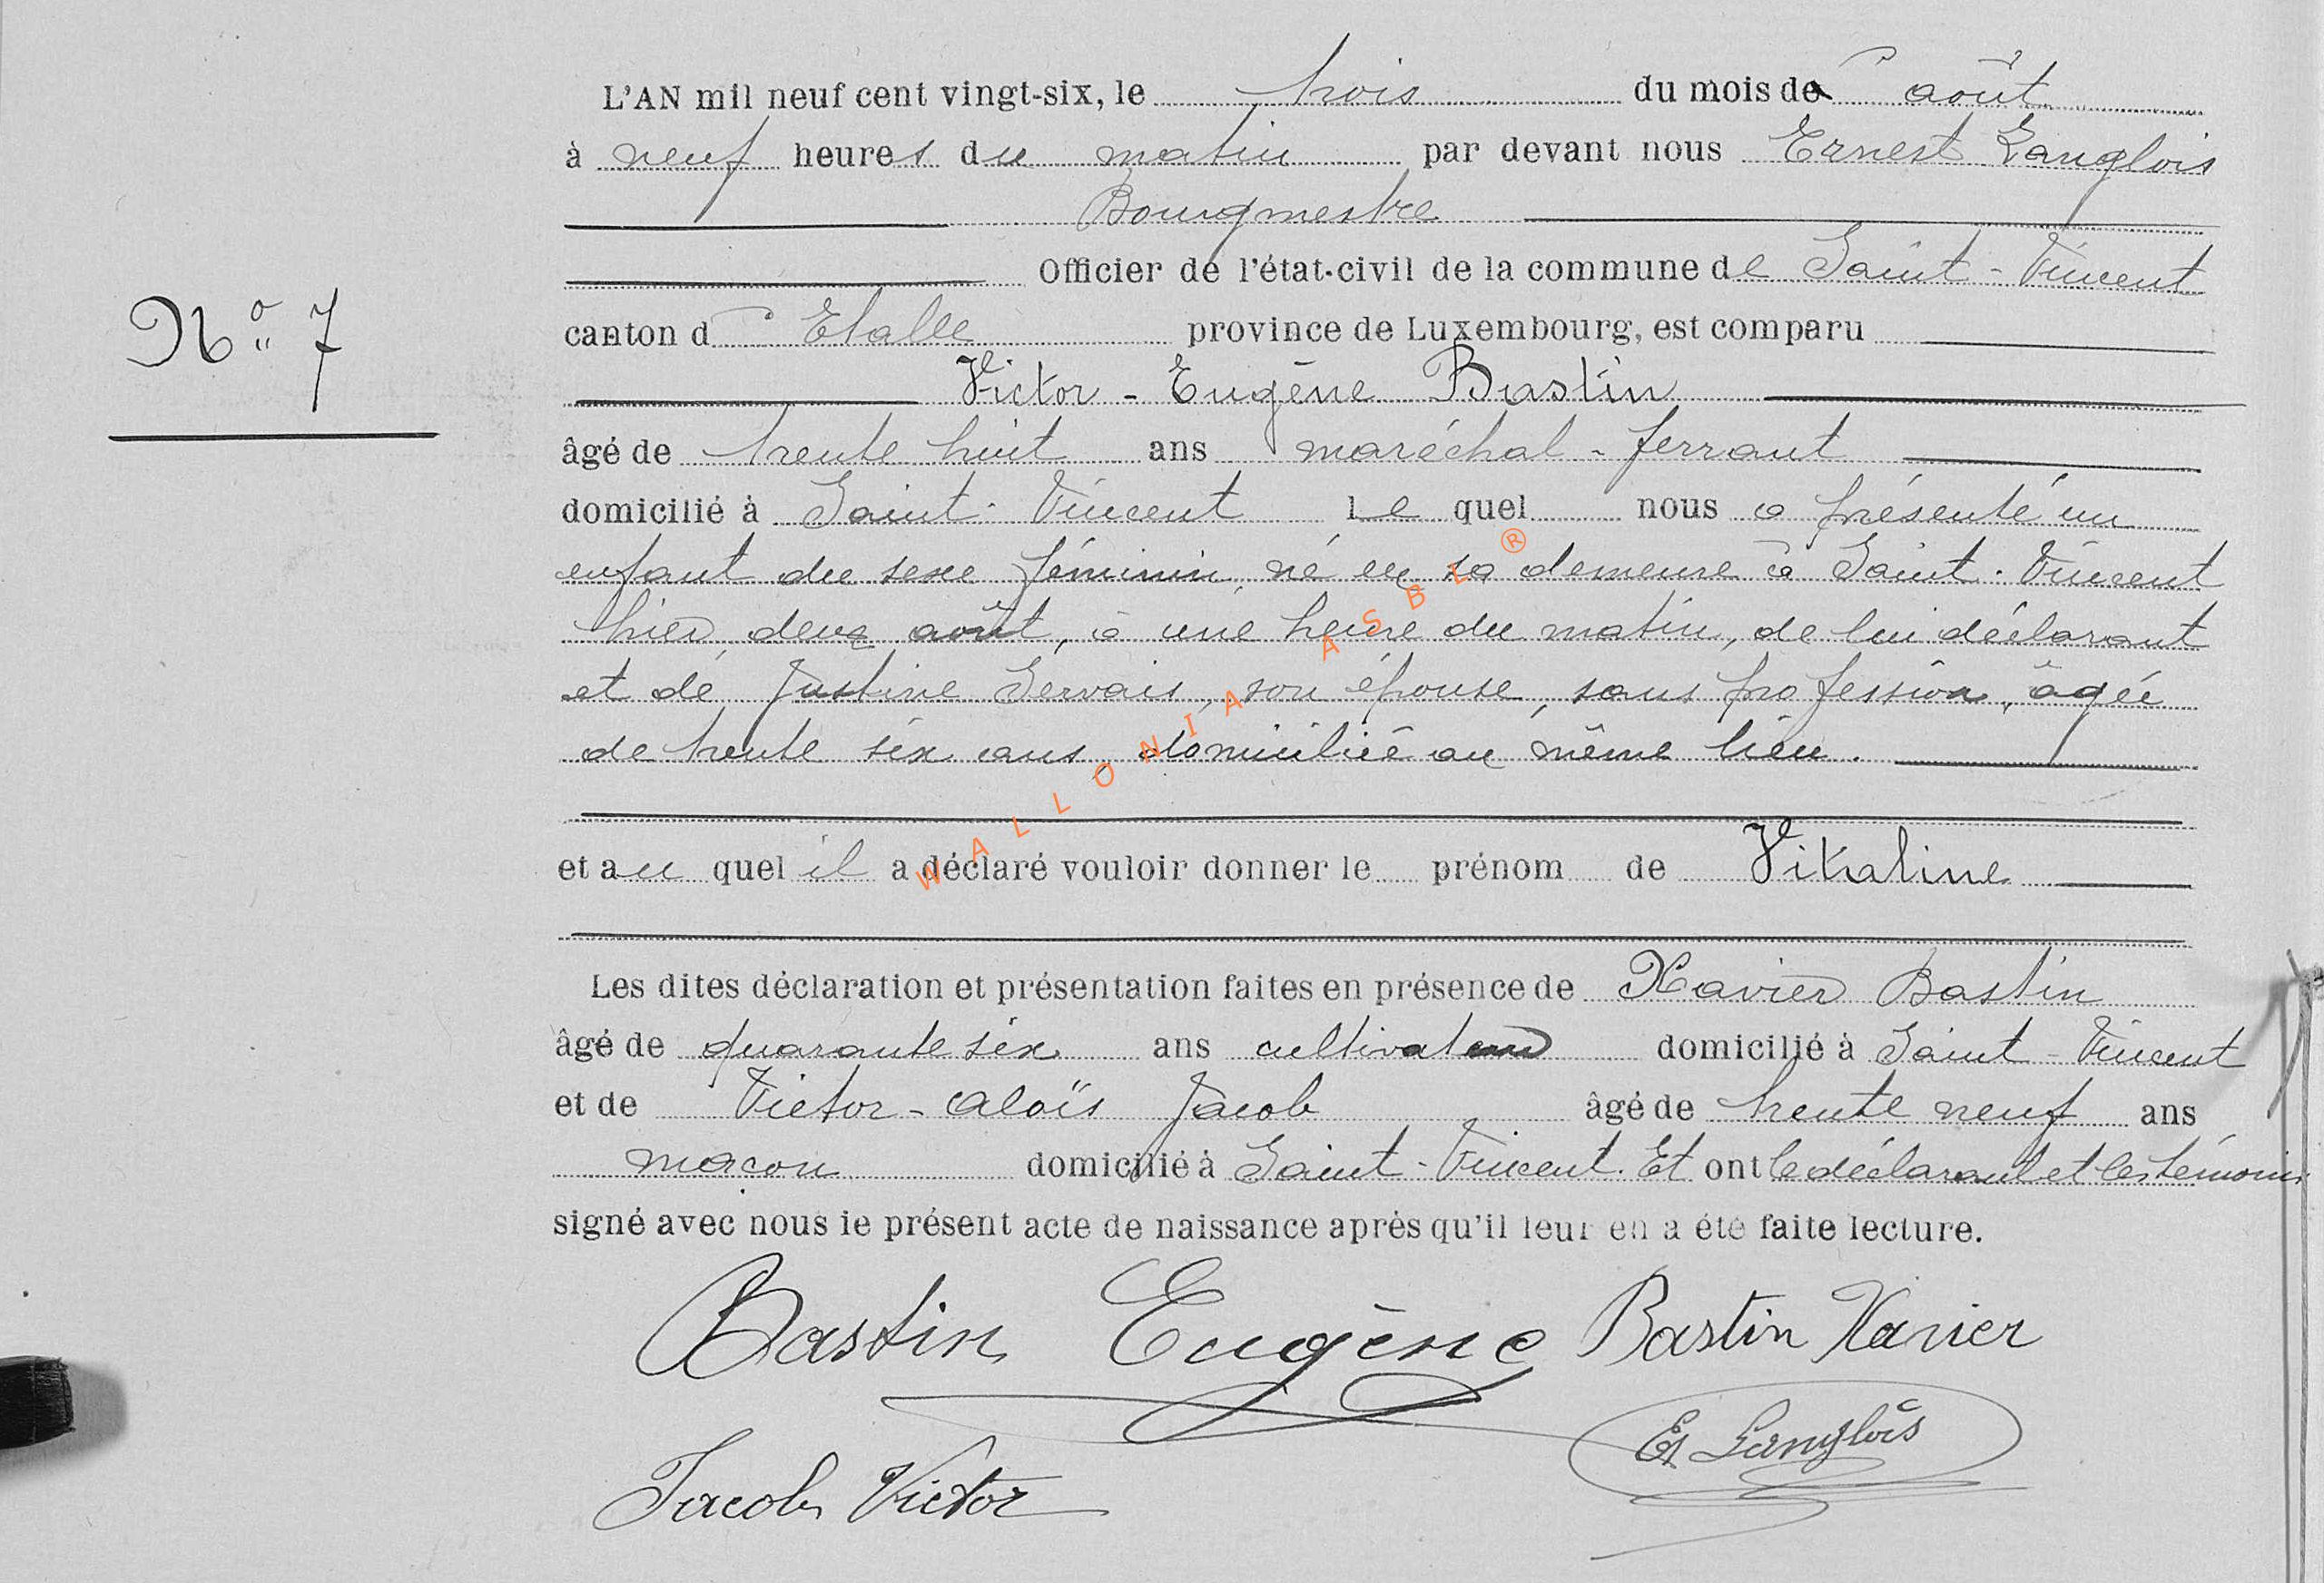 L'AN mil neuf cent vingt-six, le trois du mois d' août
à neuf heures du matin par devant nous Ernest Langlois
Bourgmestre
Officier de l'état-civil de la commune de Saint-Vincent
N° 7
canton d' Etalle province de Luxembourg, est comparu
Victor-Eugène Bastin
âgé de trente huit ans maréchal-ferrant
domicilié à Saint-Vincent le quel nous a présenté un
enfant du sexe féminin, né en sa demeure à Saint-Vincent
hier, deux août, à une heure du matin, de lui déclarant
et de Justine Gervais, son épouse, sans profession, âgée
de trente six ans, domicilié au même lieu.
et au quel il a déclaré vouloir donner le prénom de Vitaline
Les dites déclaration et présentation faites en présence de Xavier Bastin
âgé de quarante six ans cultivateur domicilié à Saint-Vincent
et de Victor-Aloïs Jacob âgé de trente neuf ans
maçon domicilié à Saint-Vincent. Et ont le déclarant et les témoins
signé avec nous le présent acte de naissance après qu'il leur en a été faite lecture.
Bastin Eugène Bastin Xavier
Et Langlois
Jacob Victor
WALLONIA ASBL ®